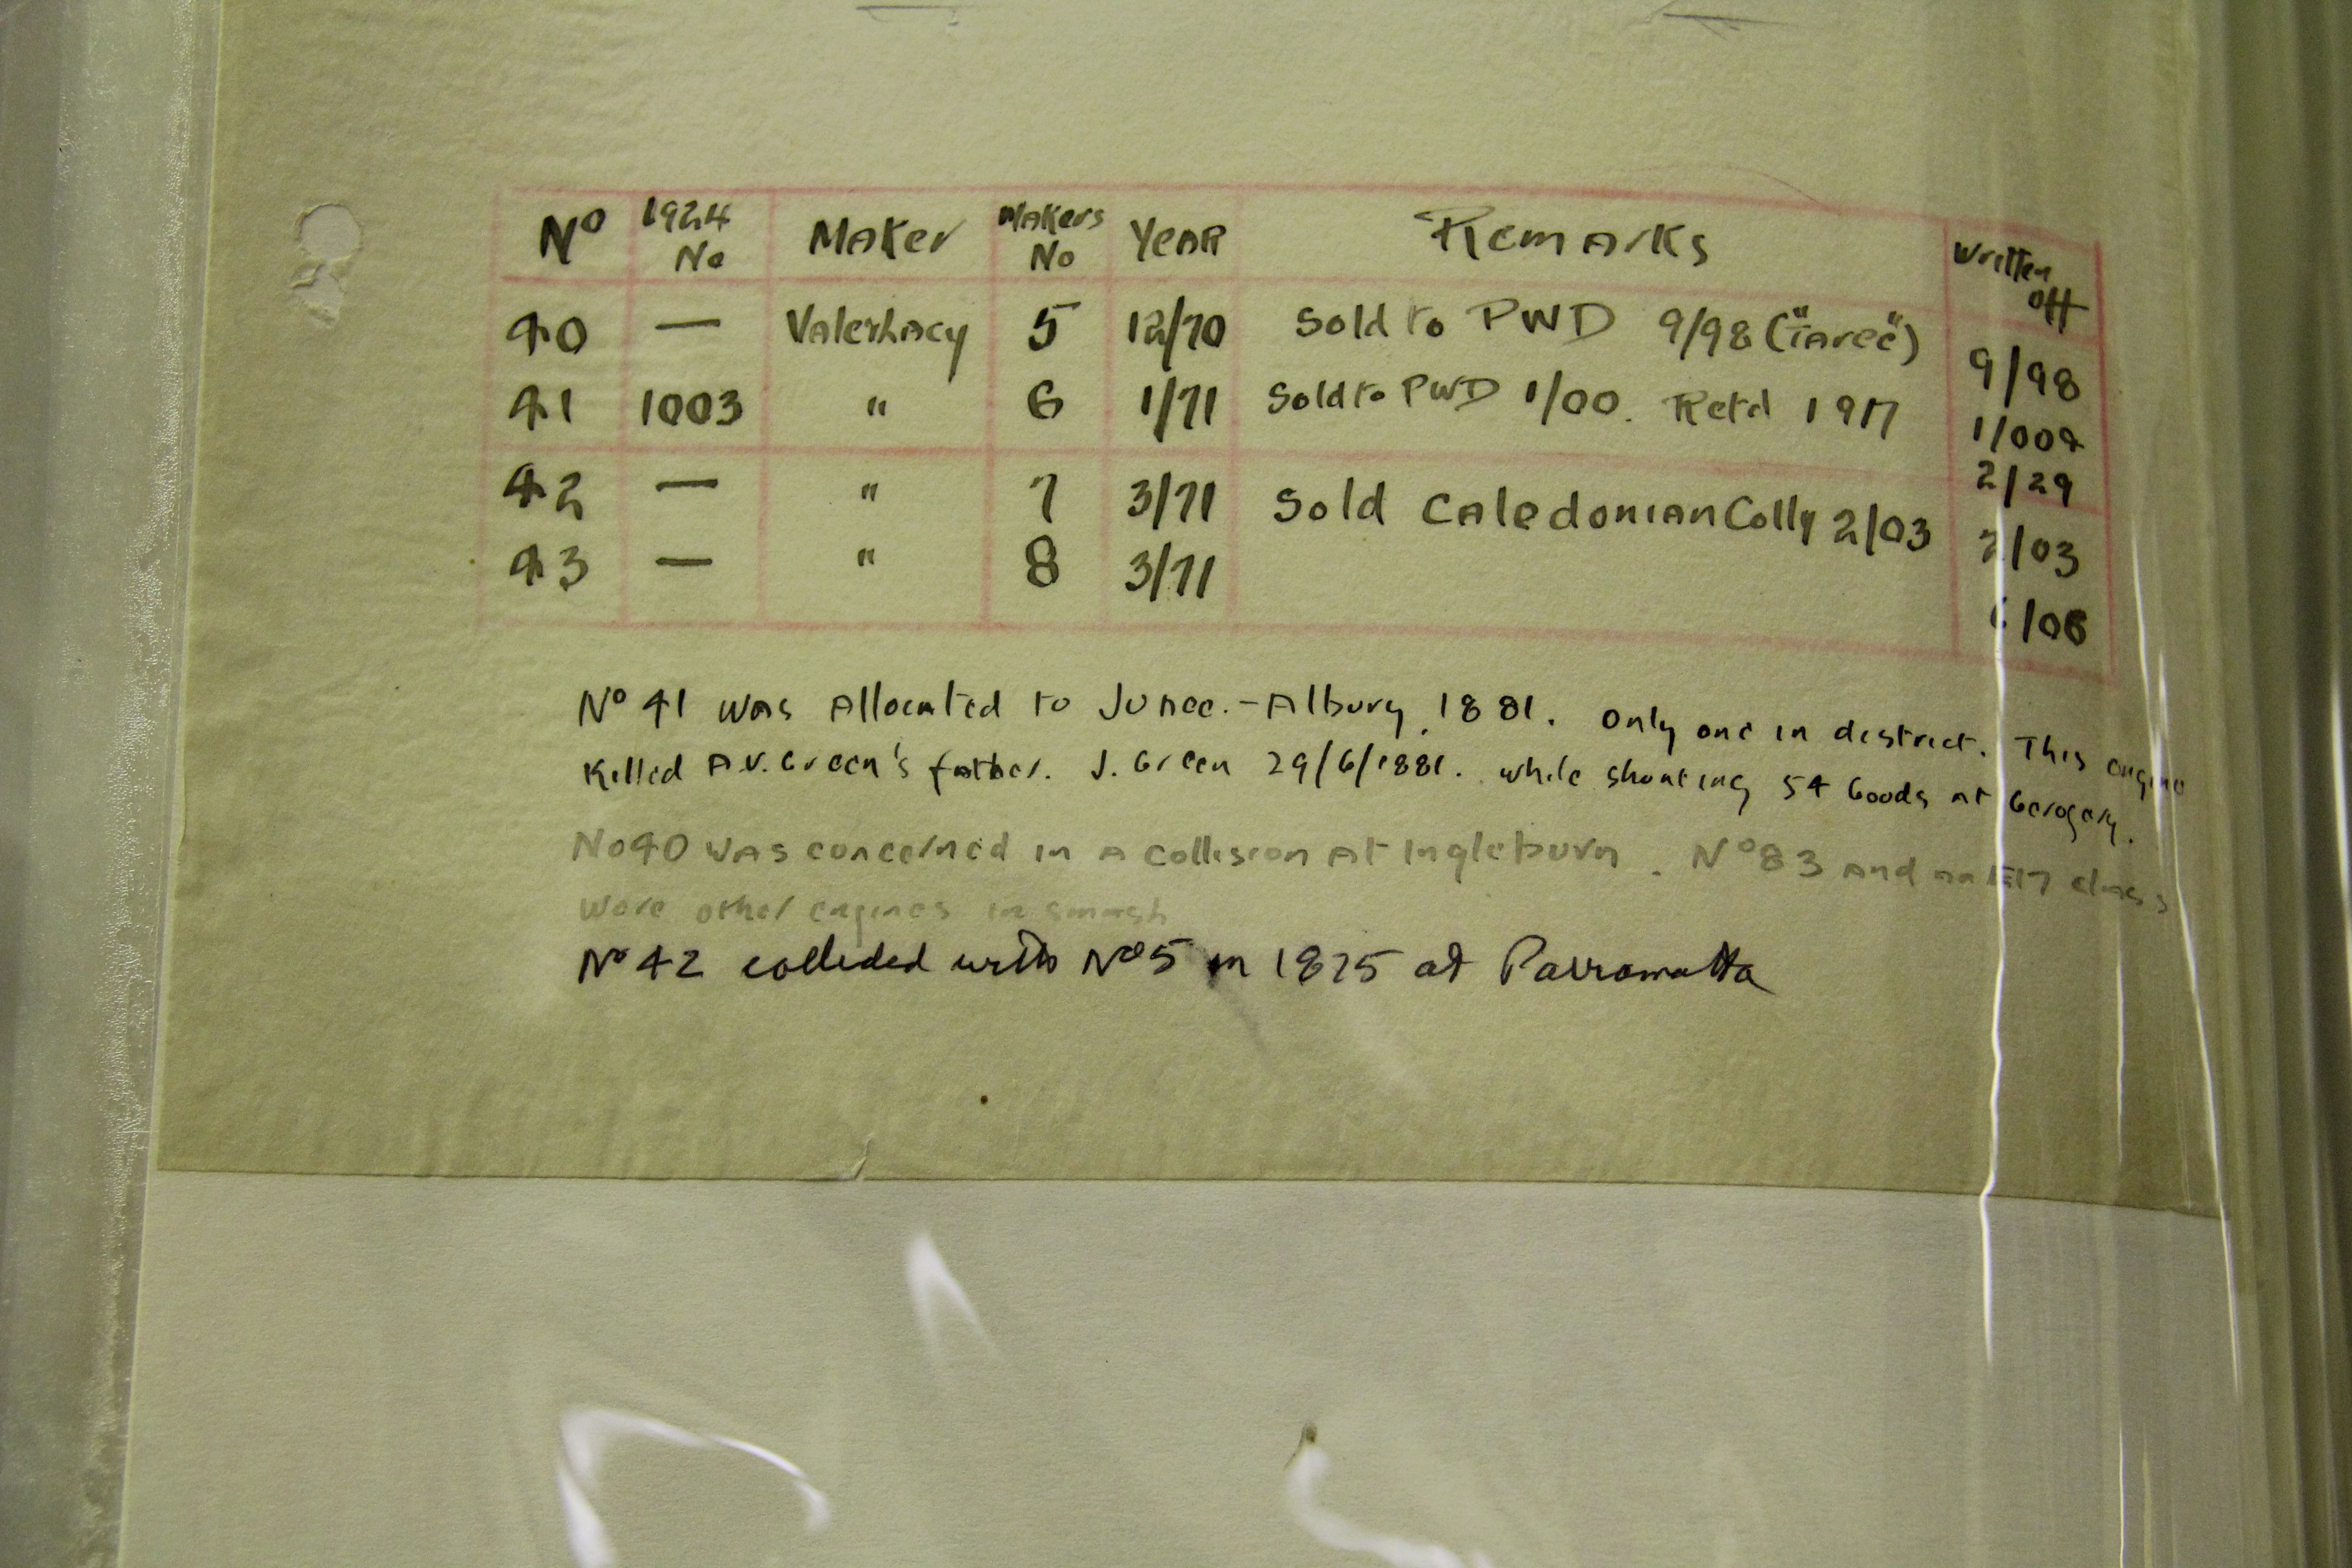 No 1924 No Maker Makers No Year Remarks Written off
40 — Vale & Lacy 5 12/70 Sold to PWD 9/98 ("Taree") 9/98
41 1003 " 6 1/71 Sold to PWD 1/00. Retd 1917 1/00 2/29
42 — " 7 3/71 Sold Caledonian Colly 2/03 2/03
43 — " 8 3/71 /06
No 41 was Allocated to Junee.-Albury 1881. Only one in district. This engine
Killed A.V. Green's father. J. Green 29/6/1881. while shunting 54 Goods at Gerogery.
No 40 was concerned in a collision at Ingleburn. No 83 and an E17 class
were other engines in smash
No 42 collided with No 5 in 1875 at Parramatta